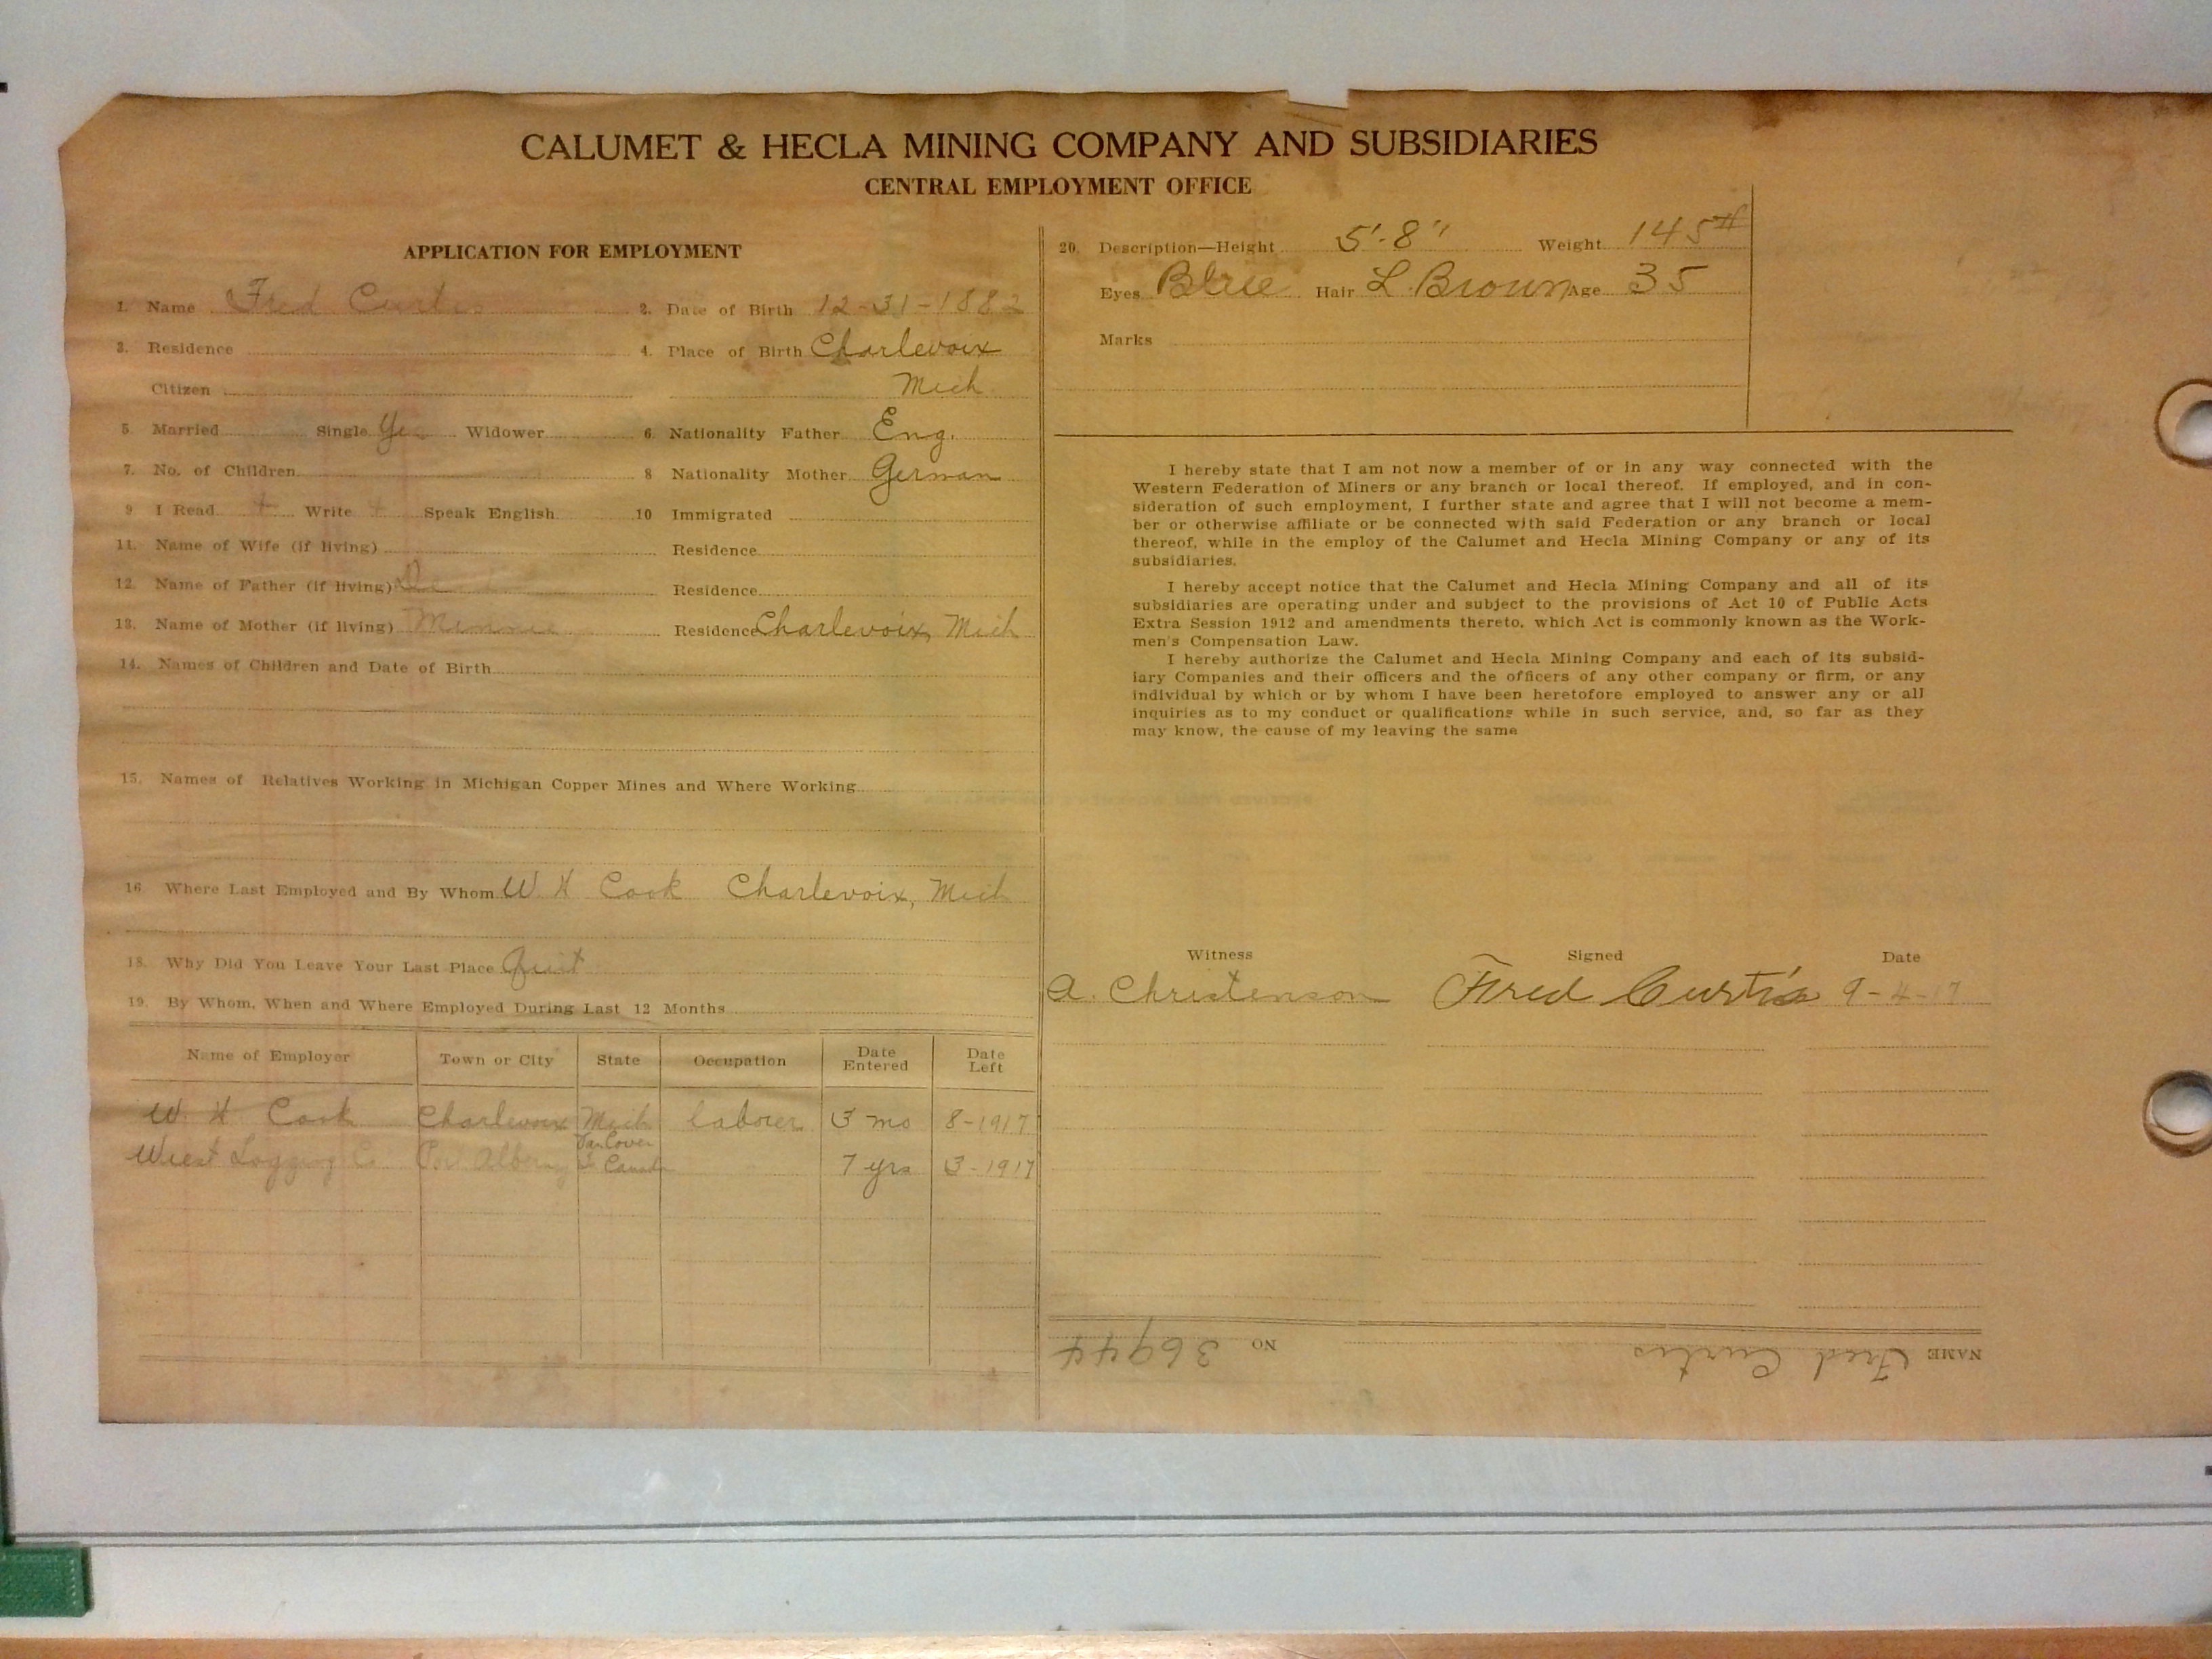 CALUMET & HECLA MINING COMPANY AND SUBSIDIARIES
CENTRAL EMPLOYMENT OFFICE
APPLICATION FOR EMPLOYMENT
1. Name Fred Curtis 2. Date of Birth 12-31-1882
3. Residence 4. Place of Birth Charlevoix
Citizen Mich
5 Married Single Yes Widower 6 Nationality Father Eng.
7. No. of Children 8 Nationality Mother German
9 I Read + Write + Speak English 10 Immigrated
11. Name of Wife (if living) Residence
12 Name of Father (if living) Residence
13. Name of Mother (if living) Minnie Residence Charlevoix, Mich
14. Names of Children and Date of Birth
15. Names of Relatives Working in Michigan Copper Mines and Where Working
16 Where Last Employed and By Whom W. H Cook Charlevoix, Mich
18. Why Did You Leave Your Last Place Quit
19. By Whom, When and Where Employed During Last 12 Months
Name of Employer Town or City State Occupation Date Entered Date Left
W. H Cook Charlevoix Mich laborer 3 mo 8-1917
Wiest Logging Co Alberny VanCover Is Canada 7 yrs 3-1917
20. Description—Height 5'-8" Weight 145#
Eyes Blue Hair L. Brown Age 35
Marks
I hereby state that I am not now a member of or in any way connected with the
Western Federation of Miners or any branch or local thereof. If employed, and in con-
sideration of such employment, I further state and agree that I will not become a mem-
ber or otherwise affiliate or be connected with said Federation or any branch or local
thereof, while in the employ of the Calumet and Hecla Mining Company or any of its
subsidiaries.
I hereby accept notice that the Calumet and Hecla Mining Company and all of its
subsidiaries are operating under and subject to the provisions of Act 10 of Public Acts
Extra Session 1912 and amendments thereto, which Act is commonly known as the Work-
men's Compensation Law.
I hereby authorize the Calumet and Hecla Mining Company and each of its subsid-
iary Companies and their officers and the officers of any other company or firm, or any
individual by which or by whom I have been heretofore employed to answer any or all
inquiries as to my conduct or qualifications while in such service, and, so far as they
may know, the cause of my leaving the same
Witness Signed Date
A. Christenson Fred Curtis 9-4-17
NAME Fred Curtis NO 36944